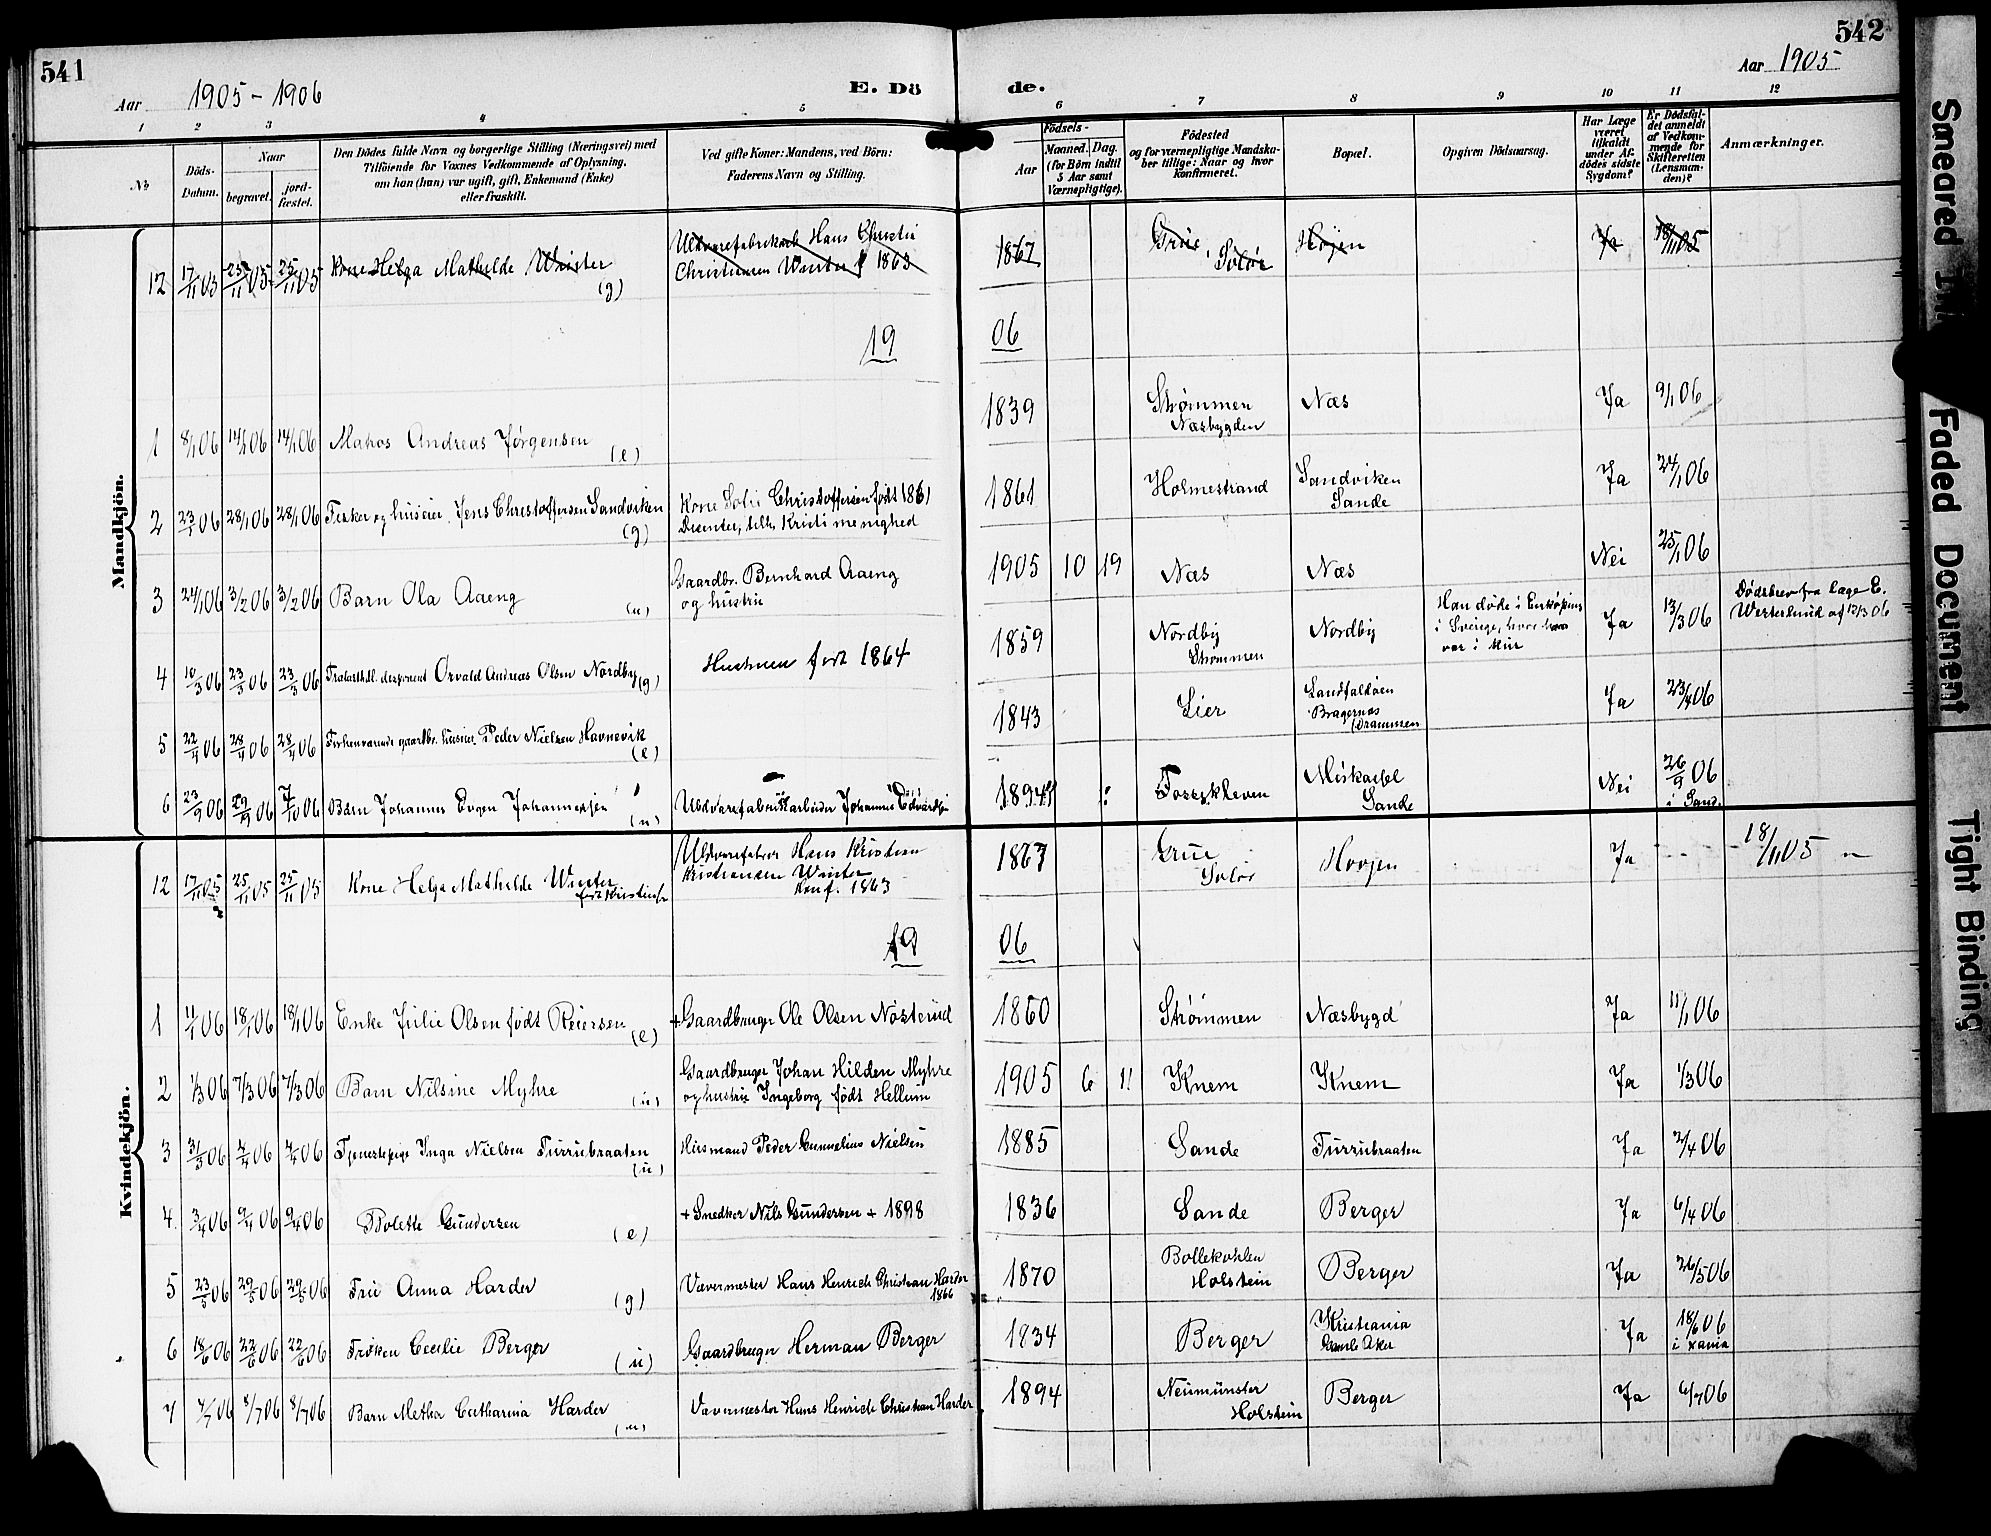 541
542
Aar 1905 - 1906
E. Dö
de.
Aar 1905
1 2 3 4 5 6 7 8 9 10 11 12
No
Döds-
Datum.
Naar
begravet.
jord-
fæstet.
Den Dödes fulde Navn og borgerlige Stilling (Næringsvei) med
Tilföiende for Voxnes Vedkommende af Oplysning,
om han (hun) var ugift, gift, Enkemand (Enke)
eller fraskilt.
Ved gifte Koner: Mandens, ved Börn:
Faderens Navn og Stilling.
Födsels-
Aar
Maaned. Dag.
(for Börn indtil
5 Aar samt
Værnepligtige).
Födested
og for værnepligtige Mandska-
ber tillige: Naar og hvor
konfirmeret.
Bopæl.
Opgiven Dödsaarsag.
Har Læge
været
tilkaldt
under Af-
dödes sidste
Sygdom?
Er Dödsfal-
det anmeldt
af Vedkom-
mende for
Skifteretten
(Lensman-
den)?
Anmærkninger.
Mandkjön.
12 17/11 05 25/11 05 25/11 05 Kone Helga Mathilde Winter (g)
Uldvarefabrikark Hans Christia
Christiansen Winter f 1863
1867 Grue, Solør Højen Ja 18/11 05
19 06
1 8/1 06 14/1 06 14/1 06 Matros Andreas Jørgensen (e)
1839 Strømmen
Næsbygden Næs Ja 9/1 06
2 23/1 06 28/1 06 28/1 06 Fisker og huseier Jens Christoffersen Sandviken (g)
Kone Sofie Christoffersen født 1861
Disenter, tilh. Kristi menighed
1861 Holmestrand Sandviken
Sande Ja 24/1 06
3 24/1 06 3/2 06 3/2 06 Barn Ola Aaeng (u)
Gaardbr. Bernhard Aaeng
og hustru
1905 10 19 Næs Næs Nei 25/1 06
4 10/3 06 23/3 06 23/3 06 Trælasthdl. disponent Osvald Andreas Olsen Nordby (g)
Hustruen født 1864
1859 Nordby
Strømmen Nordby
Han døde i Enköping
i Sverige, hvor han
var i kur
Ja 13/3 06
Dødsbrev fra læge E.
Westerlund af 12/3 06
5 22/4 06 28/4 06 28/4 06 Forhenværende gaardbr. huseier Peder Nielsen Havnevik (e)
1843 Lier Landfaldøen
Bragernæs
Drammen Ja 23/4 06
6 23/9 06 29/9 06 7/10 06 Barn Johannes Evgen Johannesjen (u)
Uldvarefabrikkarbeider Johannes Edvardsen
1894 Fossekleven Sande Nei 26/9 06
i Sand.
Kvindekjön.
12 17/11 05 25/11 05 25/11 05 Kone Helga Mathilde Winter
født Kristians
Uldvarefabr Hans Kristian
Kristiansen Winter
Konf. 1863
1867 Grue
Solør Hovjen Ja 18/11 05
19 06
1 11/1 06 18/1 06 18/1 06 Enke Julie Olsen født Reiersen (e)
+ Gaardbruger Ole Olsen Nøsterud
1860 Strømmen Næsbygd Ja 11/1 06
2 1/3 06 7/3 06 7/3 06 Barn Nilsine Myhre (u)
Gaardbruger Johan Hilden Myhre
og hustru Ingeborg født Hellum
1905 6 11 Knem Knem Ja 1/3 06
3 31/3 06 7/4 06 7/4 06 Tjenestepige Inga Nielsen Furrubraaten (u)
Husmand Peder Gunnelius Nielsen
1885 Sande Furrubraaten Ja 2/4 06
4. 3/4 06 9/4 06 9/4 06 Bolette Gundersen (e)
+ Snedker Nils Gundersen + 1898
1836 Sande Berger Ja 6/4 06
5 23/5 06 29/5 06 29/5 06 Fru Anna Harder (g)
Vævermester Hans Henrich Christian Harder
1866
1870 Bollekohlen
Holstein Berger Ja 26/5 06
6 18/6 06 22/6 06 22/6 06 Frøken Cecilie Berger (u)
Gaardbruger Herman Berger
1834 Berger Kristiania
Gamle Aker Ja 18/6 06
i Xania
7 4/7 06 8/7 06 8/7 06 Barn Metha Catharina Harder (u)
Vævermester Hans Henrich Christian Harder
1894 Neumünster
Holstein Berger Ja 6/7 06
Smeared Ink
Faded Document
Tight Binding